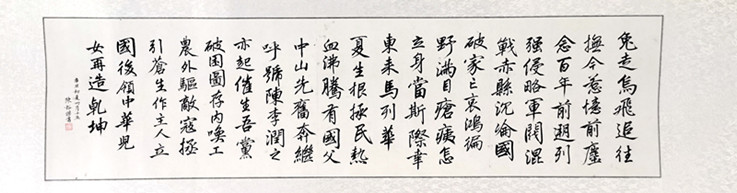 兔走烏飛追往
撫今憑憶前塵
念百年前週列
强侵略軍閥混
戰赤縣沉淪國
破家亡哀鴻徧
野滿目瘡痍怎
立身當斯際幸
東來馬列華
夏生根拯民熱
血沸騰有國父
中山先奮奔繼
呼號陳李潤之
亦起催生吾黨
破困圖存内喚工
農外驅敵寇拯
引蒼生作主人立
國後領中華兒
女再造乾坤